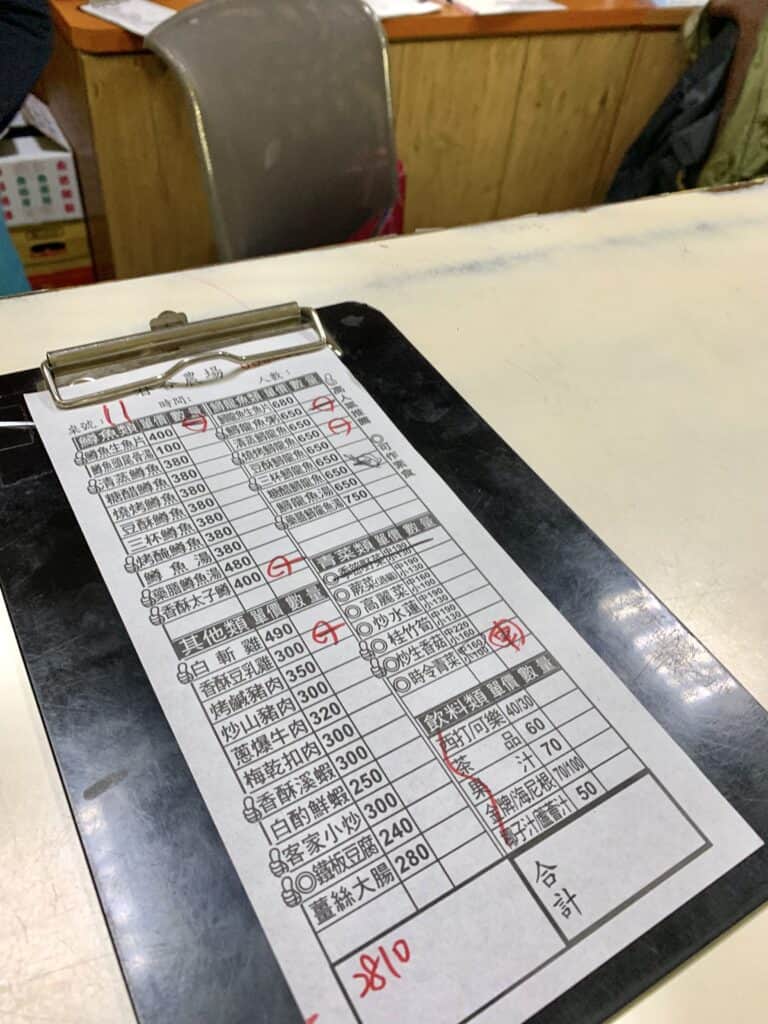 農場
桌號：11
時間：
人數：
鱒魚類 單價 數量
鱒魚生魚片 400 一
鱒魚頭尾骨湯 100
清蒸鱒魚 380
糖醋鱒魚 380
燒烤鱒魚 380
豆酥鱒魚 380
三杯鱒魚 380
烤醃鱒魚 380
鱒魚湯 380
藥膳鱒魚湯 480
香酥太子鱒 400 一
其他類 單價 數量
白斬雞 490 一
香酥豆乳雞 300
烤鹹豬肉 350
炒山豬肉 300
蔥爆牛肉 320
梅乾扣肉 300
香酥溪蝦 300
白酌鮮蝦 250
客家小炒 300
鐵板豆腐 240
薑絲大腸 280
鱘龍魚類 單價 數量
鱘龍生魚片 680 一
鱘龍魚粥 650 一
清蒸鱘龍魚 650
燒烤鱘龍魚 650
豆酥鱘龍魚 650
三杯鱘龍魚 650
糖醋鱘龍魚 650
鱘龍魚湯 650
藥膳鱘龍魚湯 750
高人氣推薦
◎可作素食
青菜類 單價 數量
蕨菜 中190 小130
高麗菜 中160 小100
炒水蓮 中190 小130
桂竹筍 中190 小130
炒生香菇 中220 小160
時令青菜 中160 小100
飲料類 單價 數量
西打/可樂 40/30
茶品 60
果汁 70
金牌/海尼根 70/100
椰子汁/蘆薈汁 50
合計
2810